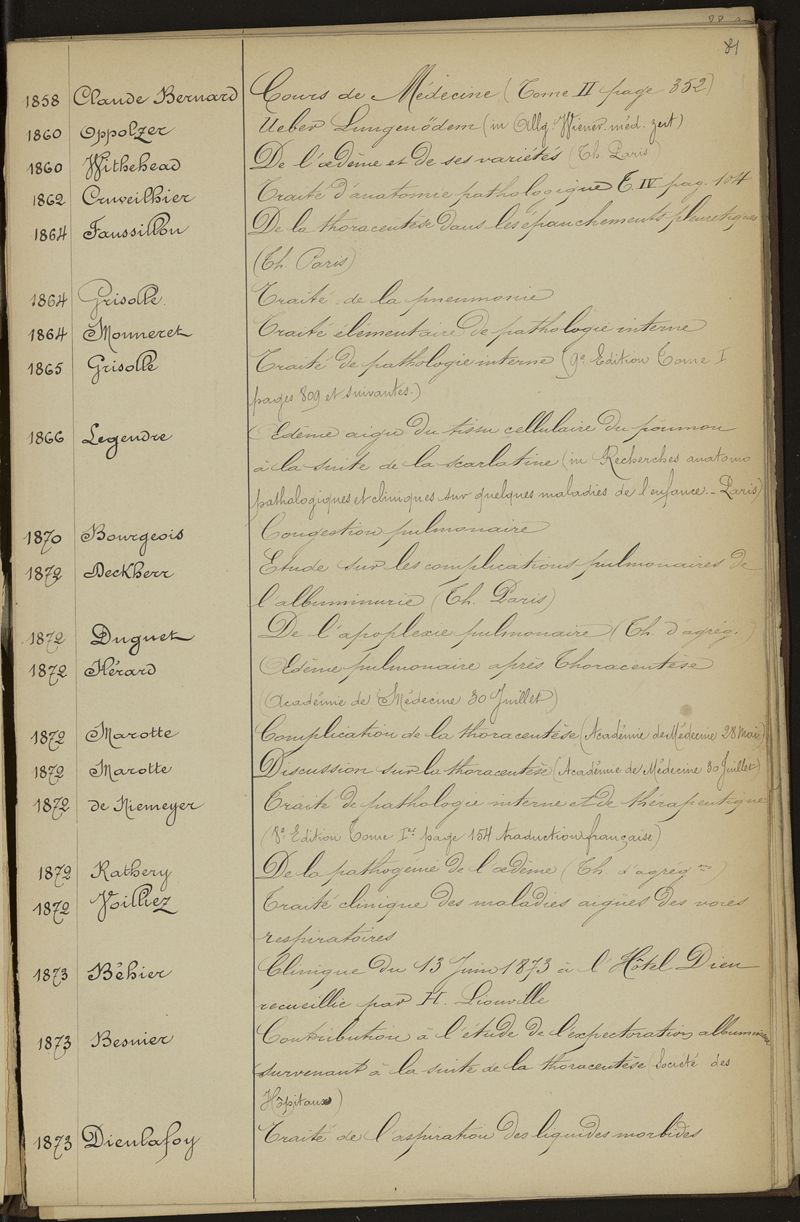 81
1858 Claude Bernard Cours de Médecine (Tome II page 352)
1860 Oppolzer Ueber Lungenödem (in Allg. Wiener. méd. zeit)
1860 Withehead De l'œdème et de ses variétés (Th. Paris)
1862 Cruveilhier Traité d'anatomie pathologique T. IV pag. 104
1864 Faussillon De la thoracentèse dans les épanchements pleurétiques
(Th. Paris)
1864 Grisolle. Traité de la pneumonie
1864 Monneret Traité élémentaire de pathologie interne
1865 Grisolle Traité de pathologie interne (9e. Edition Tome I
pages 809 et suivantes.)
1866 Legendre Œdème aigu du tissu cellulaire du poumon
à la suite de la scarlatine (in Recherches anatomo
pathologiques et cliniques sur quelques maladies de l'enfance - Paris)
1870 Bourgeois Congestion pulmonaire
1872 Deckherr Etude sur les complications pulmonaires de
l'albuminurie (Th. Paris)
1872 Duguet De l'apoplexie pulmonaire (Th. d'agrég.
1872 Hérard Œdème pulmonaire après Thoracentèse
(Académie de Médecine 30 Juillet)
1872 Marotte Complication de la thoracentèse (Académie de Médecine 28 Mai)
1872 Marotte Discussion sur la thoracentèse (Académie de Médecine 30 Juillet)
1872 de Niemeyer Traité de pathologie interne et de thérapeutique
(8e. Edition Tome Ier page 154 traduction française)
1872 Rathery De la pathogénie de l'œdème (Th. d'agrégon)
1872 Voilliez Traité clinique des maladies aiguës des voies
respiratoires
1873 Béhier Clinique du 13 Juin 1873 à l'Hôtel Dieu
recueillie par H. Liouville
1873 Besnier Contribution à l'étude de l'expectoration albumineuse
survenant à la suite de la thoracentèse (Société des
Hôpitaux)
1873 Dieulafoy Traité de l'aspiration des liquides morbides